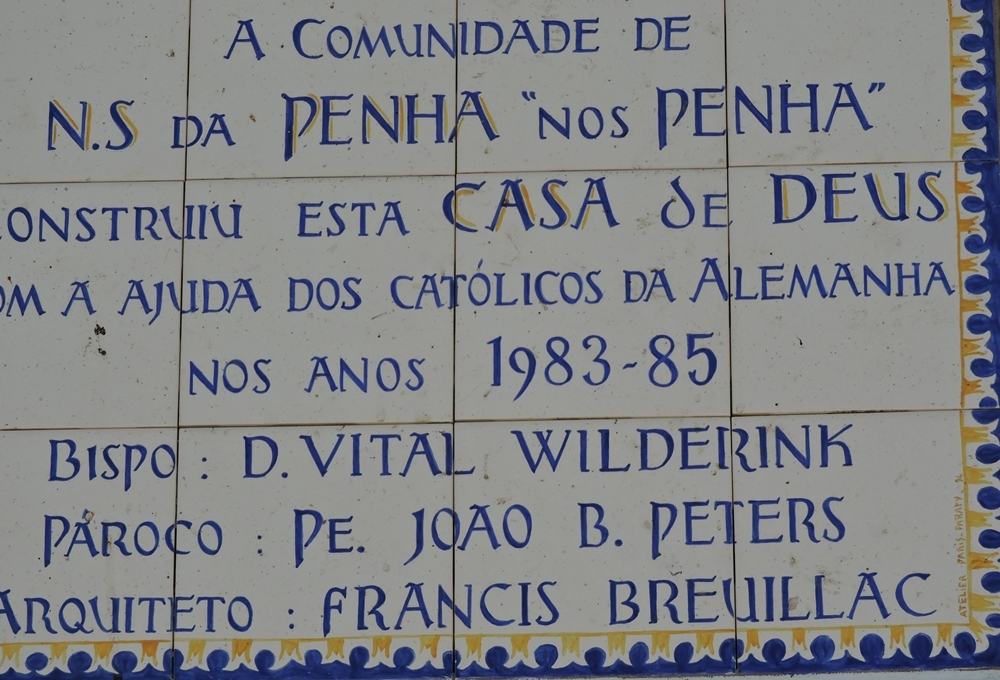 A COMUNIDADE DE
N.S DA PENHA "NOS PENHA"
CONSTRUIU ESTA CASA de DEUS
COM A AJUDA DOS CATÓLICOS DA ALEMANHA
NOS ANOS 1983-85
BISPO : D. VITAL WILDERINK
PÁROCO : PE. JOAO B. PETERS
ARQUITETO : FRANCIS BREUILLAC
ATELIER PARIS-PARATY